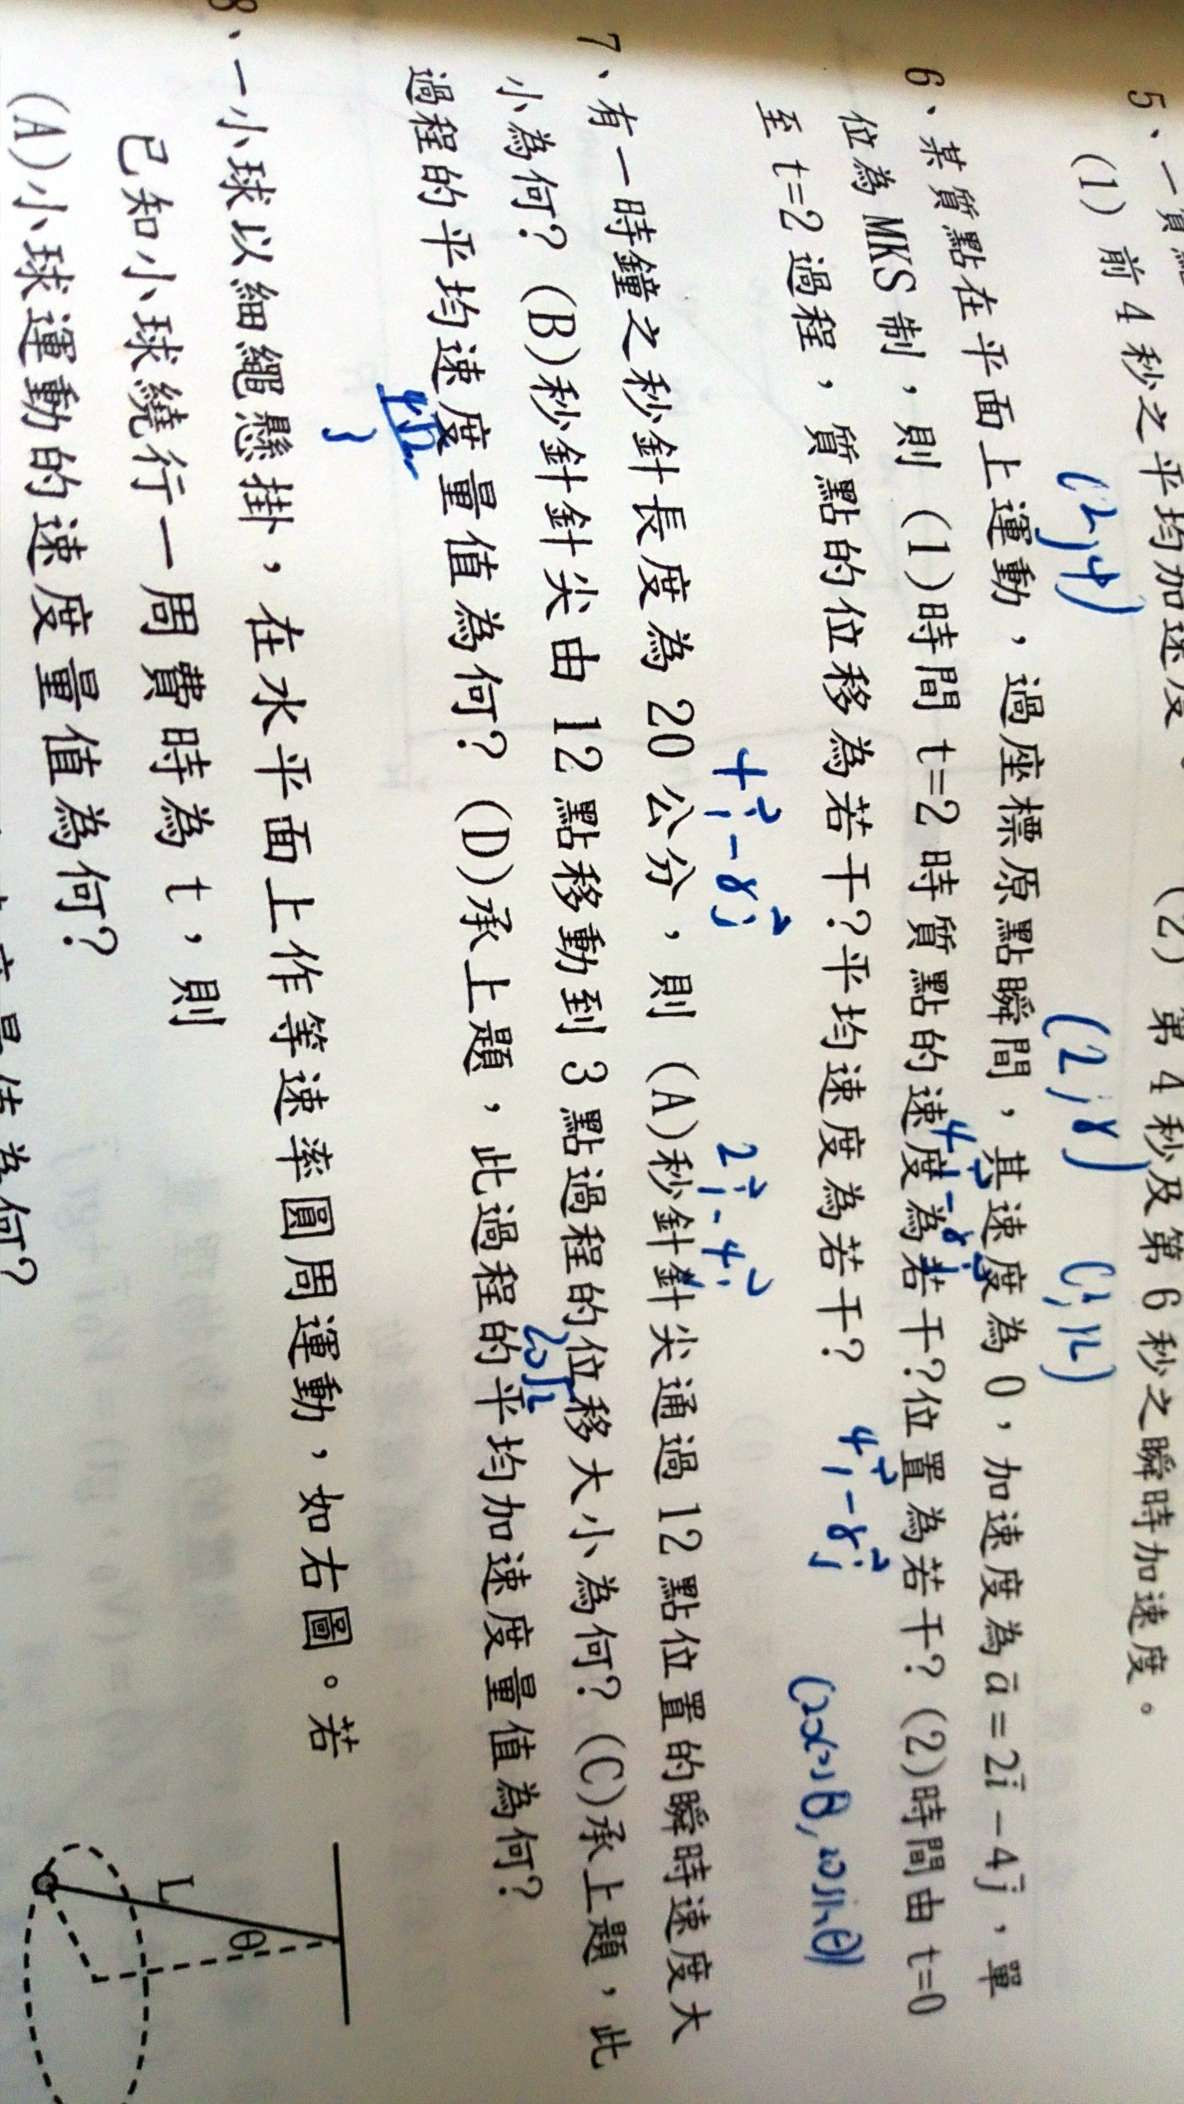 5、一質點
(1) 前 4 秒之平均加速度。 (2) 第 4 秒及第 6 秒之瞬時加速度。
(2,4) (2,8) (2,12)
6、某質點在平面上運動，過座標原點瞬間，其速度為 0，加速度為 a̅=2i̅-4j̅，單
位為 MKS 制，則 (1)時間 t=2 時質點的速度為若干?位置為若干? (2)時間由 t=0
4i-8j
至 t=2 過程，質點的位移為若干?平均速度為若干?
4i-8j
(20cosθ, 20sinθ)
4i-8j 2i-4j
7、有一時鐘之秒針長度為 20 公分，則 (A)秒針針尖通過 12 點位置的瞬時速度大
小為何? (B)秒針針尖由 12 點移動到 3 點過程的位移大小為何? (C)承上題，此
20√2
過程的平均速度量值為何? (D)承上題，此過程的平均加速度量值為何?
4√2
3
8、一小球以細繩懸掛，在水平面上作等速率圓周運動，如右圖。若
已知小球繞行一周費時為 t，則
(A)小球運動的速度量值為何?
L
θ